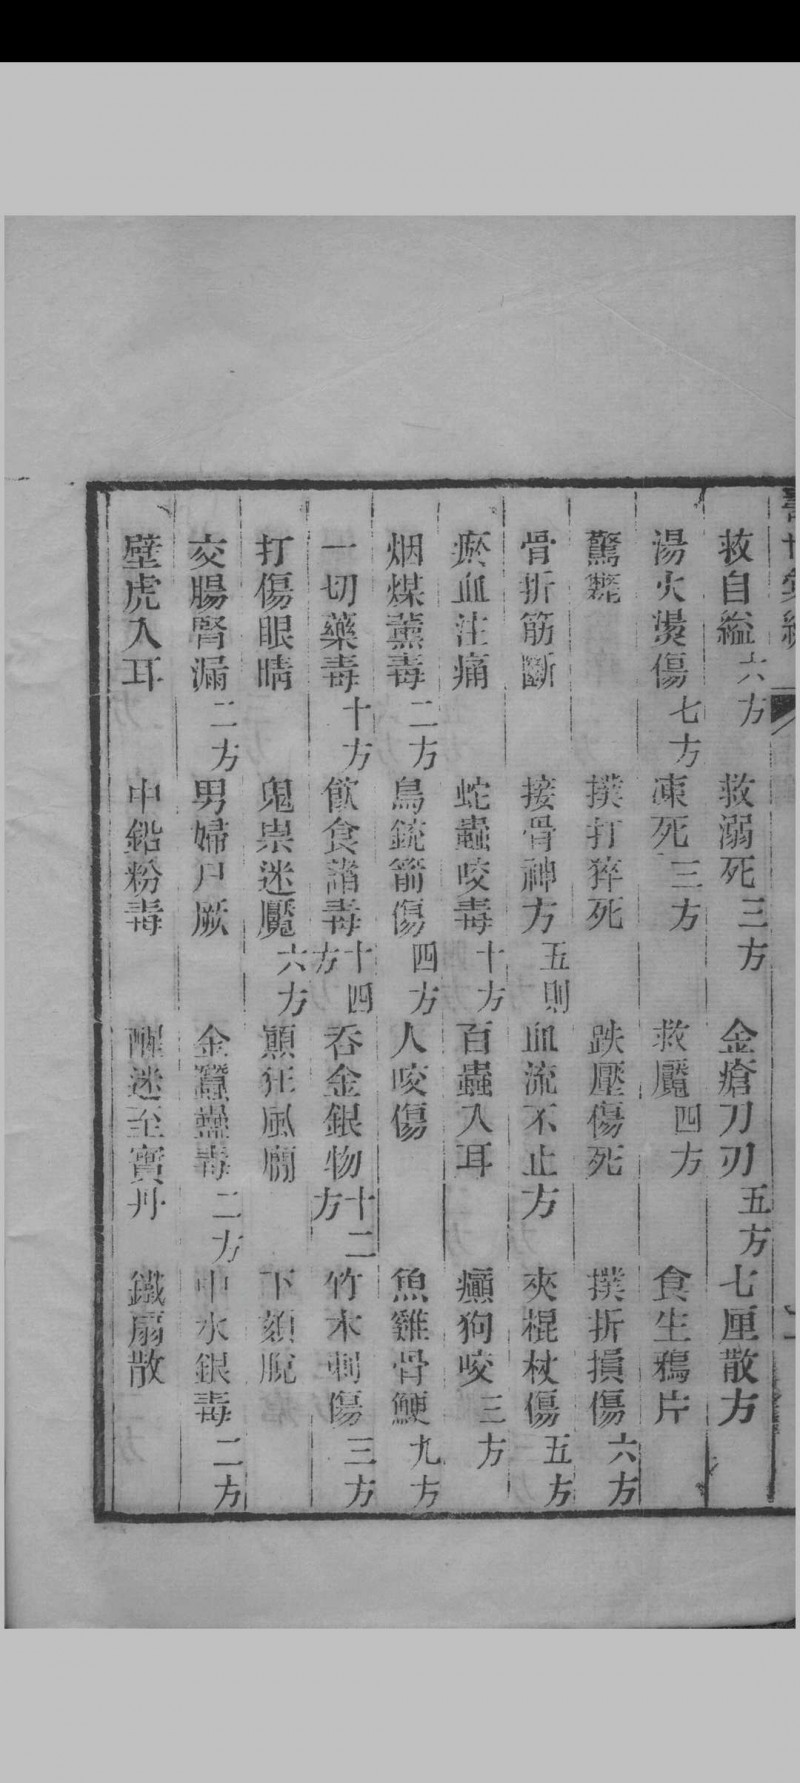 救自縊六方　救溺死三方　金瘡刀刃五方　七厘散方
湯火燙傷七方　凍死三方　救魘四方　食生鴉片
驚斃　撲打猝死　跌壓傷死　撲折損傷六方
骨折筋斷　接骨神方五則　血流不止方　夾棍杖傷五方
瘀血注痛　蛇蟲咬毒十方　百蟲入耳　癲狗咬三方
烟煤薰毒二方　鳥銃箭傷四方　人咬傷　魚雞骨鯁九方
一切藥毒十方　飲食諸毒十四方　吞金銀物十二方　竹木刺傷三方
打傷眼睛　鬼祟迷魘六方　顛狂風　下頦脫
交腸腎漏二方　男婦尸厥　金蠶蠱毒二方　中水銀毒二方
壁虎入耳　中鉛粉毒　醒迷至寶丹　鐵扇散